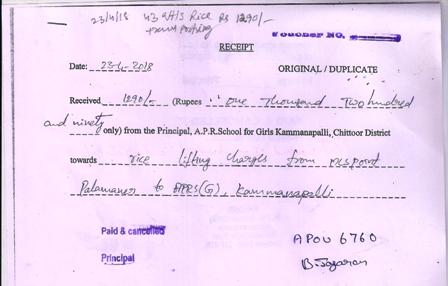 23/4/18 43 qtls Rice Rs 1290/-
VOUCHER NO.
RECEIPT
Date: 23-4-2018 ORIGINAL / DUPLICATE
Received 1290/- (Rupees : one Thousand Two hundred
and ninety only) from the Principal, A.P.R.School for Girls Kammanapalli, Chittoor District
towards rice lifting charges from MLS point
Palamaner to APRS(G), Kammanapalli
Paid & cancelled
Principal
AP04 6760
B. Jagaran